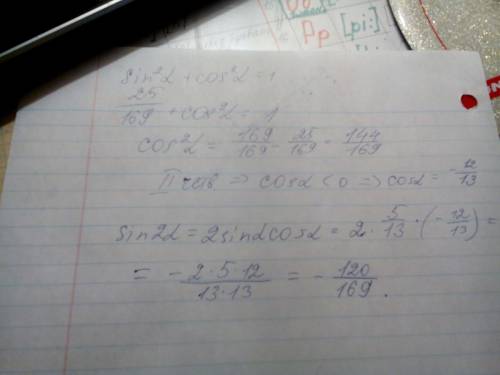 Pp [pi:]
sin²α + cos²α = 1
25/169 + cos²α = 1
cos²α = 169/169 - 25/169 = 144/169
II четв ⇒ cosα < 0 ⇒ cosα = -12/13
sin2α = 2sinαcosα = 2 · 5/13 · (-12/13) =
= - 2·5·12/13·13 = - 120/169.